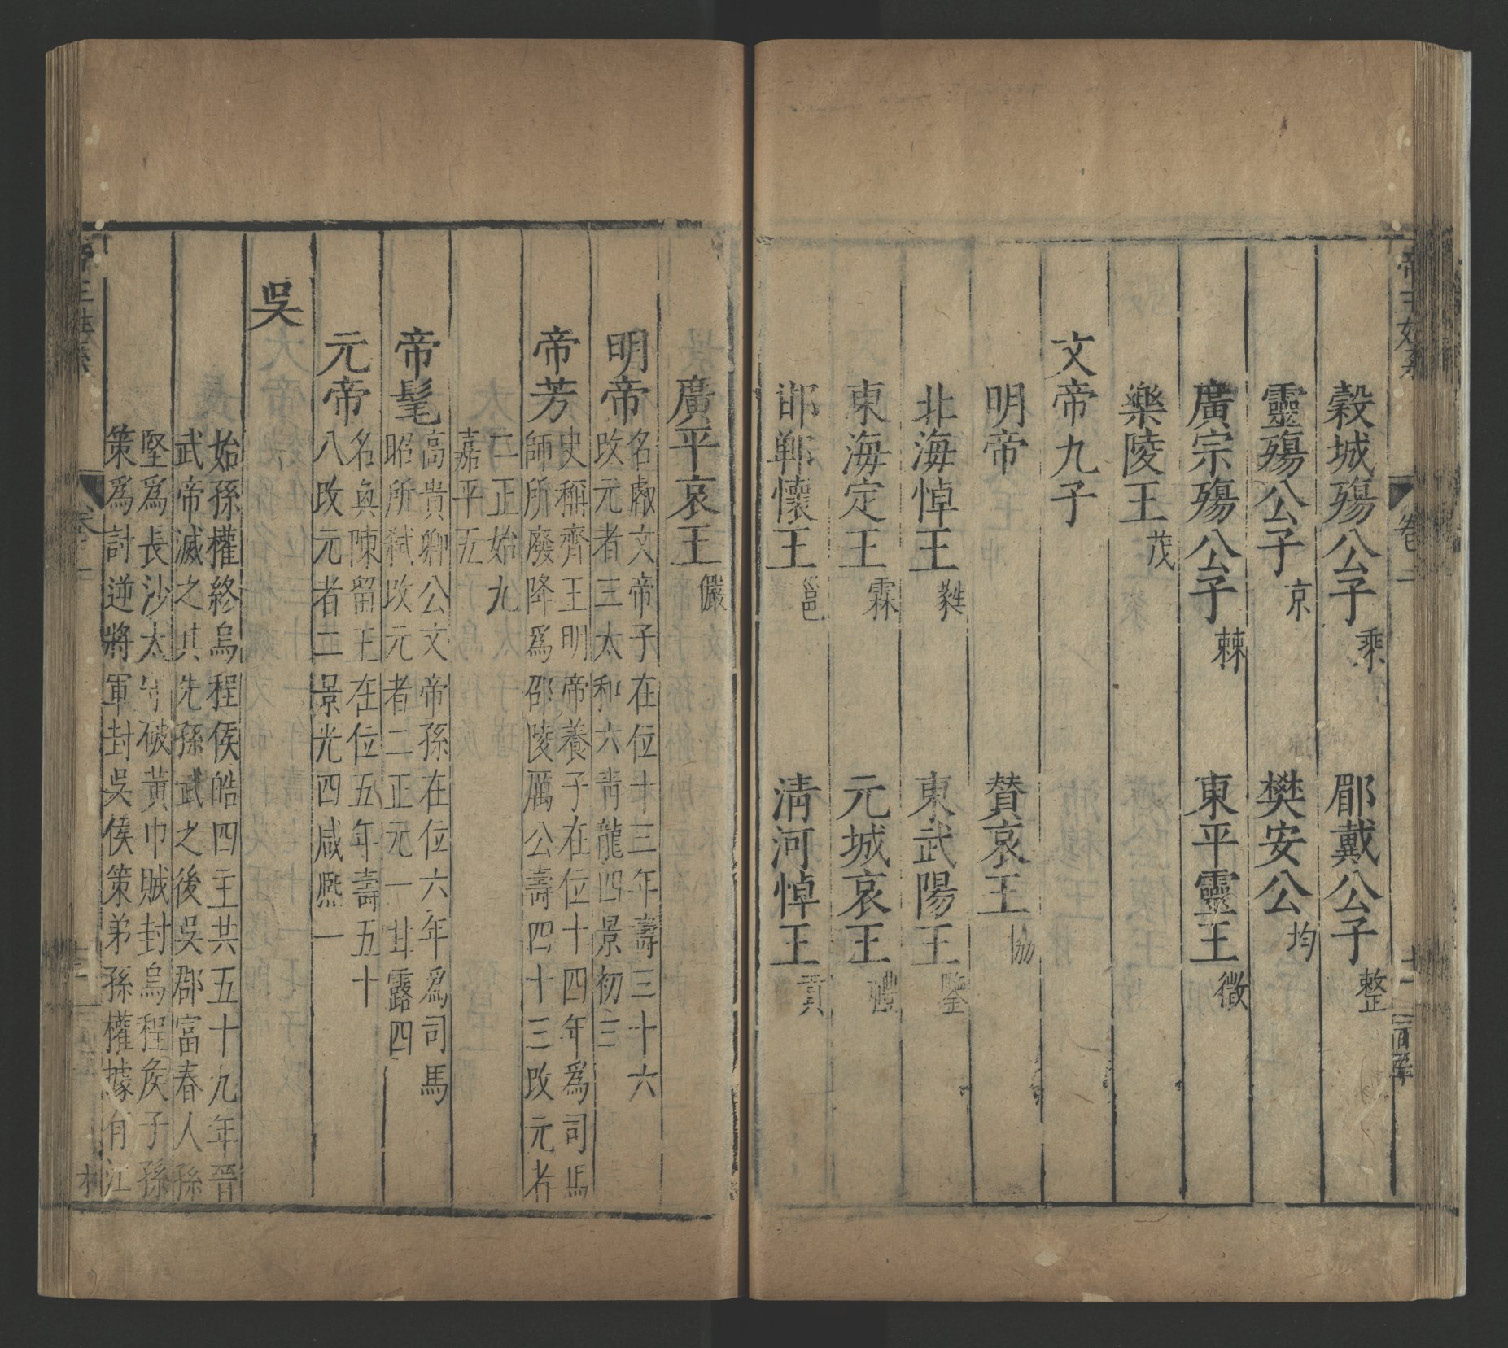 穀城殤公子乘
郿戴公子整
靈殤公子京
樊安公均
廣宗殤公子棘
東平靈王徽
樂陵王茂
文帝九子
明帝
贊哀王協
北海悼王蕤
東武陽王鑒
東海定王霖
元城哀王禮
邯鄲懷王邕
清河悼王貢
廣平哀王儼
明帝
名叡文帝子在位十三年壽三十六
改元者三太和六青龍四景初三
帝芳
史稱齊王明帝養子在位十四年爲司馬
師所廢降爲邵陵厲公壽四十三改元者
二正始九
嘉平五
帝髦
高貴鄉公文帝孫在位六年爲司馬
昭所弒改元者二正元一甘露四
元帝
名奐陳留王在位五年壽五十
八改元者二景光四咸熙一
吳
始孫權終烏程侯皓四主共五十九年晉
武帝滅之其先孫武之後吳郡富春人孫
堅爲長沙太守破黃巾賊封烏程侯子孫
策爲討逆將軍封吳侯策弟孫權據有江